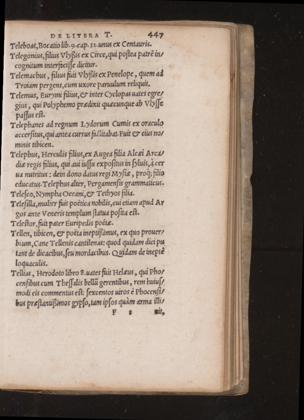 DE LITERA T. 447
Teleboas, Bocatio lib. 9. cap. 11. unus ex Centauris.
Telegonius, filius Vlyßis ex Circe, qui postea patrē in-
cognitum interfecisse dicitur.
Telemachus, filius fuit Vlyßis ex Penelope, quem ad
Troiam pergens, cum uxore parvulum reliquit.
Telemus, Eurymi filius, & inter Cyclopas vates egre-
gius, qui Polyphemo prædixit quæcunque ab Vlysse
passus est.
Telephanes ad regnum Lydorum Cumis ex oraculo
accersitus, qui antea currus factitabat. Fuit & eius no-
minis tibicen.
Telephus, Herculis filius, ex Augea filia Alexi Arca-
diæ regis filius, qui avi iussu expositus in sylvis, à cer
va nutritus: dein dono datus regi Mysiæ, proq; filio
educatus. Telephus alter, Pergamensis grammaticus.
Telesco, Nympha Oceani, & Tethyos filia.
Telesilla, mulier fuit poëtica nobilis, cui etiam apud Ar
gos ante Veneris templum statua posita est.
Telestor, fuit pater Euripedis poëtæ.
Tellen, tibicen, & poëta ineptissimus, ex quo prouer
bium, Cane Tellenis cantilenas: quod quidam dici pu
tant de dicacibus, seu mordacibus. Quidam de ineptè
loquaculis.
Tellias, Herodoto libro 8. vates fuit Heleus, qui Pho-
censibus cum Thessalis bellū gerentibus, rem huius-
modi eis commentus est: sexcentos viros è Phocensi-
bus præstantissimos gypso, tam ipsos quàm arma illi-
F 2 nit,